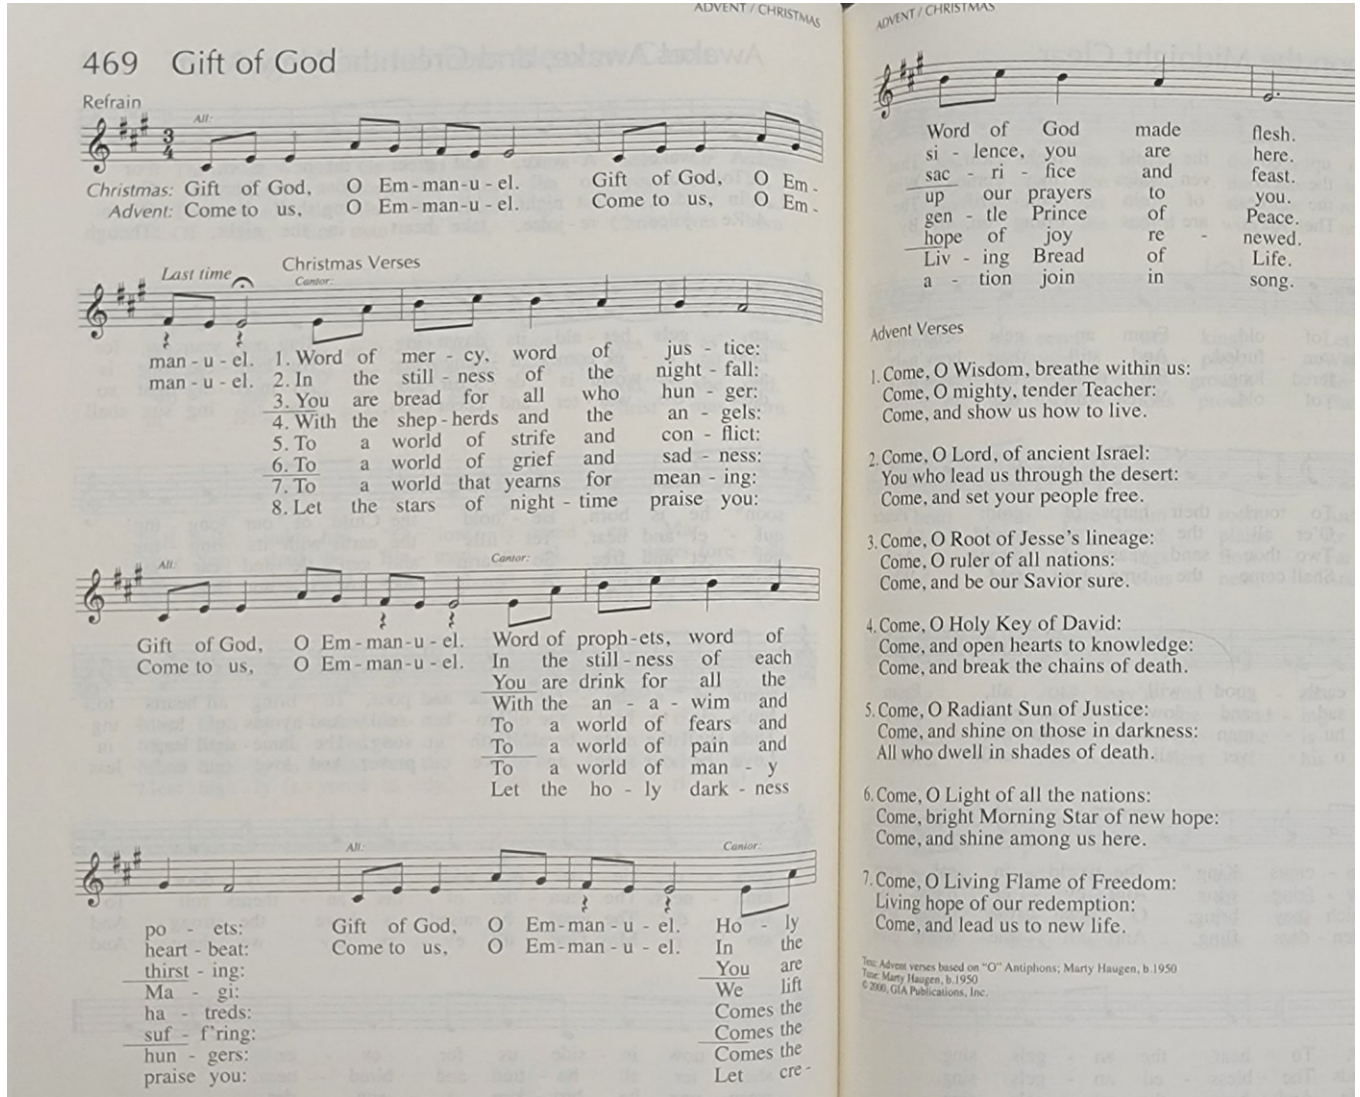 ADVENT / CHRISTMAS
469 Gift of God
Refrain
All:
3
4
Christmas: Gift of God, O Em - man - u - el. Gift of God, O Em -
Advent: Come to us, O Em - man - u - el. Come to us, O Em -
Last time
Christmas Verses
Cantor:
man - u - el. 1. Word of mer - cy, word of jus - tice:
man - u - el. 2. In the still - ness of the night - fall:
3. You are bread for all who hun - ger:
4. With the shep - herds and the an - gels:
5. To a world of strife and con - flict:
6. To a world of grief and sad - ness:
7. To a world that yearns for mean - ing:
8. Let the stars of night - time praise you:
All: Cantor:
Gift of God, O Em - man - u - el. Word of proph - ets, word of
Come to us, O Em - man - u - el. In the still - ness of each
You are drink for all the
With the an - a - wim and
To a world of fears and
To a world of pain and
To a world of man - y
Let the ho - ly dark - ness
All: Cantor:
po - ets: Gift of God, O Em - man - u - el. Ho - ly
heart - beat: Come to us, O Em - man - u - el. In the
thirst - ing: You are
Ma - gi: We lift
ha - treds: Comes the
suf - f'ring: Comes the
hun - gers: Comes the
praise you: Let cre -
ADVENT / CHRISTMAS
Word of God made flesh.
si - lence, you are here.
sac - ri - fice and feast.
up our prayers to you.
gen - tle Prince of Peace.
hope of joy re - newed.
Liv - ing Bread of Life.
a - tion join in song.
Advent Verses
1. Come, O Wisdom, breathe within us:
Come, O mighty, tender Teacher:
Come, and show us how to live.
2. Come, O Lord, of ancient Israel:
You who lead us through the desert:
Come, and set your people free.
3. Come, O Root of Jesse's lineage:
Come, O ruler of all nations:
Come, and be our Savior sure.
4. Come, O Holy Key of David:
Come, and open hearts to knowledge:
Come, and break the chains of death.
5. Come, O Radiant Sun of Justice:
Come, and shine on those in darkness:
All who dwell in shades of death.
6. Come, O Light of all the nations:
Come, bright Morning Star of new hope:
Come, and shine among us here.
7. Come, O Living Flame of Freedom:
Living hope of our redemption:
Come, and lead us to new life.
Text: Advent verses based on "O" Antiphons; Marty Haugen, b.1950
Tune: Marty Haugen, b.1950
© 2000, GIA Publications, Inc.